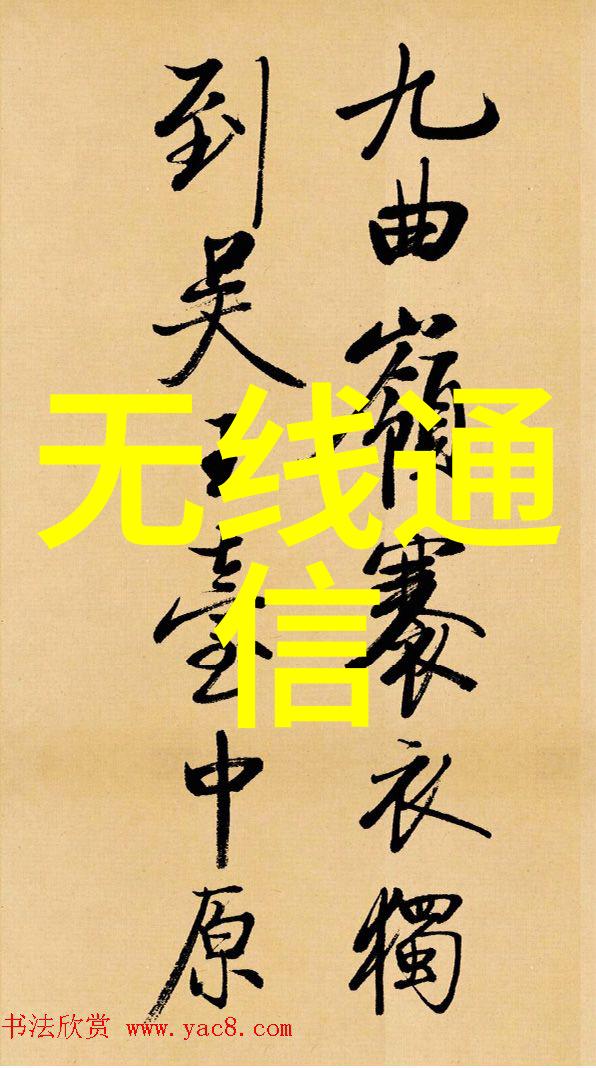 九曲嶺褰衣獨
到吳王臺中原
无线通
信
书法欣赏 www.yac8.com